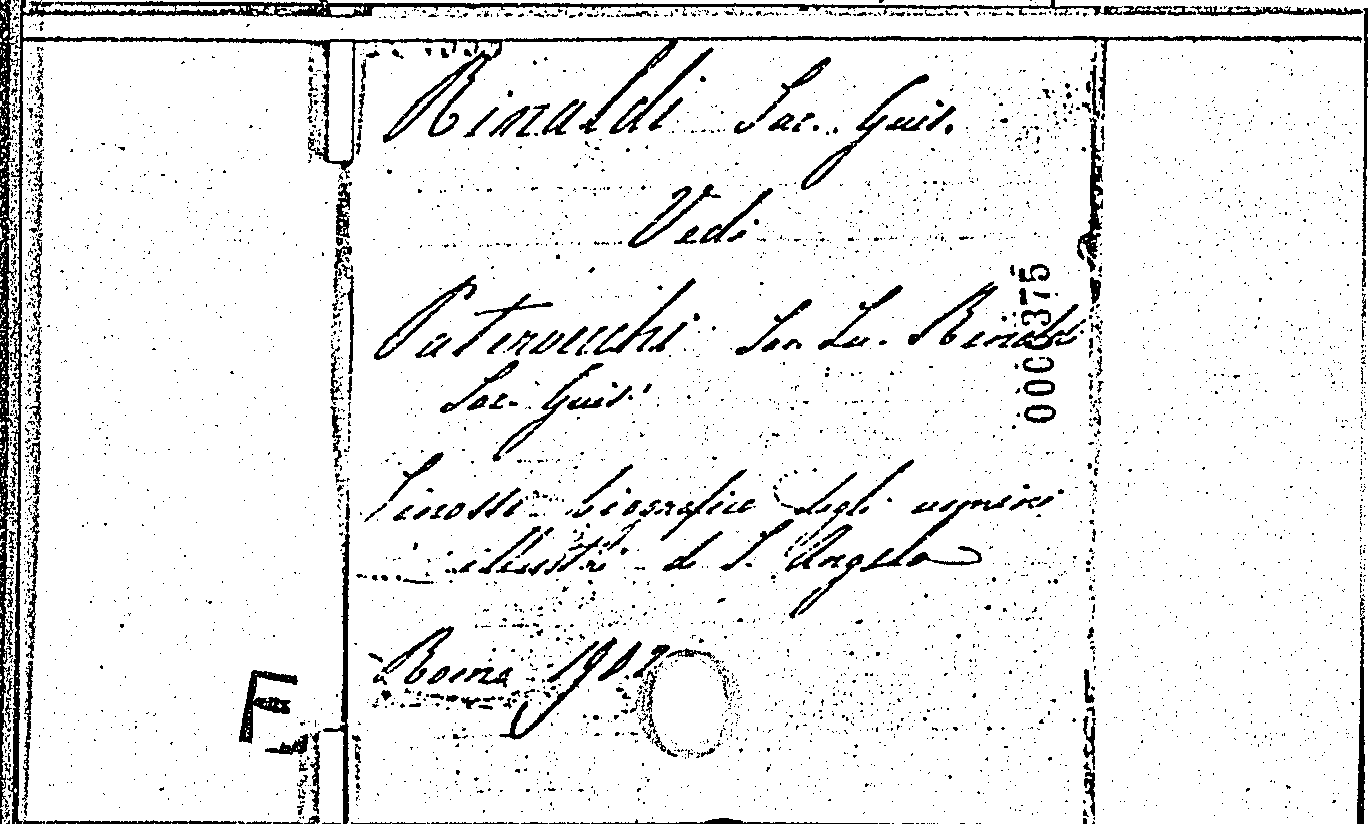 Rinaldi Sac. Gius.
Vedi
Paterocchi San La. Rinaldi
Sac. Gius.
Sinossi biografica degli uomini
illustri di S. Angelo
Roma 1902
000375
E